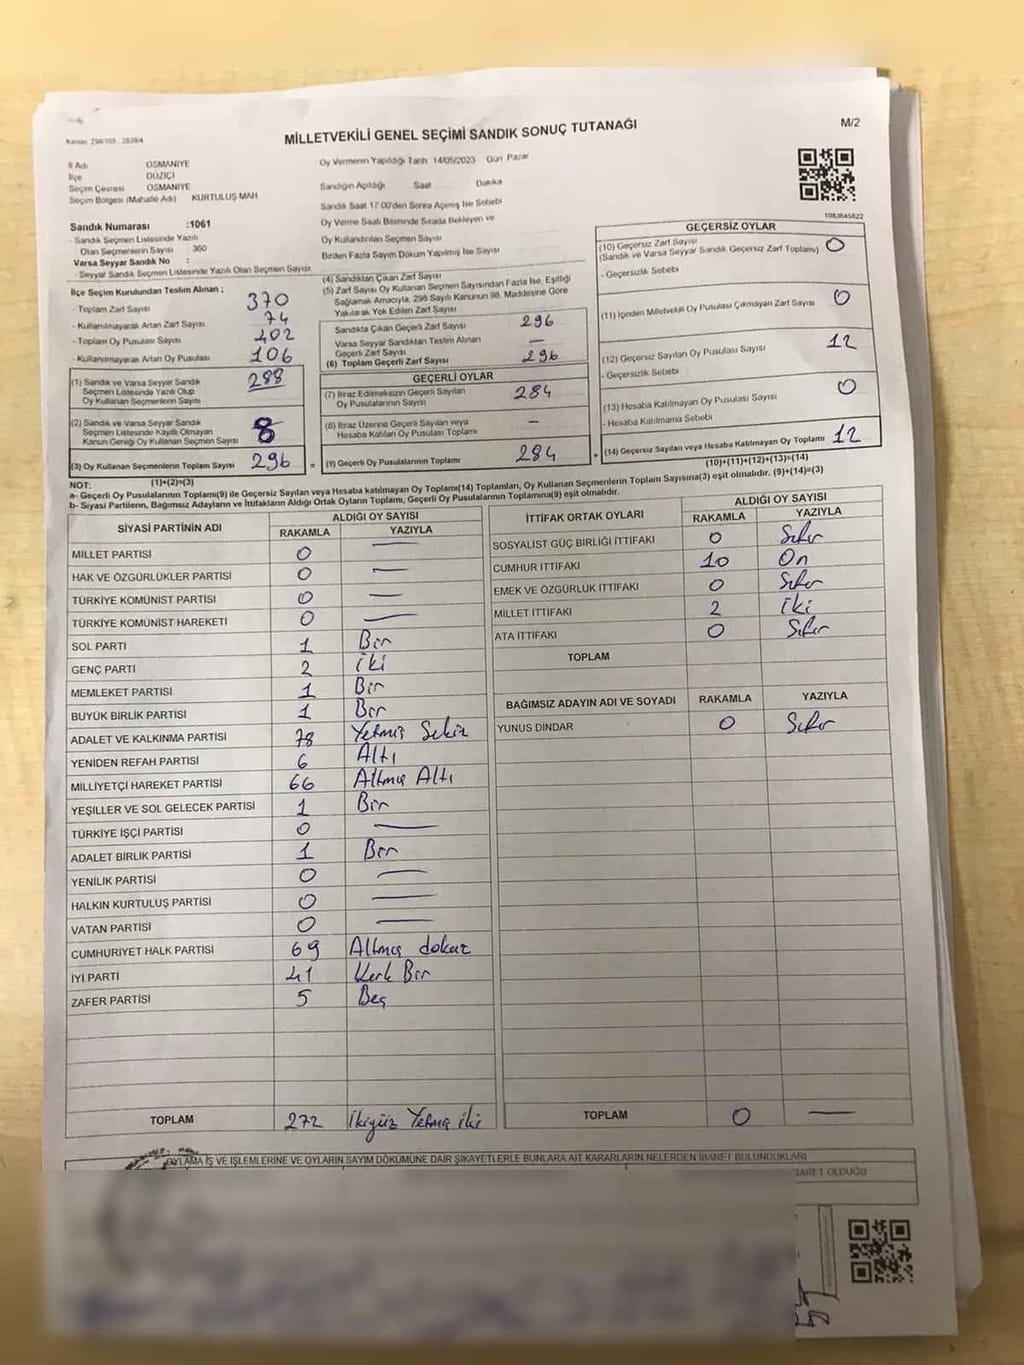 MİLLETVEKİLİ GENEL SEÇİMİ SANDIK SONUÇ TUTANAĞI
M/2
İl Adı OSMANİYE
İlçe DÜZİÇİ
Seçim Çevresi OSMANİYE
Seçim Bölgesi (Mahalle Adı) KURTULUŞ MAH
Oy Vermenin Yapıldığı Tarih 14/05/2023 Gün Pazar
Sandığın Açıldığı Saat Dakika
Sandık Saat 17:00'den Sonra Açılmış İse Sebebi
Oy Verme Saati Bitiminde Sırada Bekleyen ve
Oy Kullandırılan Seçmen Sayısı
Birden Fazla Sayım Döküm Yapılmış İse Sayısı
Sandık Numarası :1061
- Sandık Seçmen Listesinde Yazılı
Olan Seçmenlerin Sayısı 360
Varsa Seyyar Sandık No :
- Seyyar Sandık Seçmen Listesinde Yazılı Olan Seçmen Sayısı
İlçe Seçim Kurulundan Teslim Alınan ;
- Toplam Zarf Sayısı 370
- Kullanılmayarak Artan Zarf Sayısı 74
- Toplam Oy Pusulası Sayısı 402
- Kullanılmayarak Artan Oy Pusulası 106
(1) Sandık ve Varsa Seyyar Sandık
Seçmen Listesinde Yazılı Olup
Oy Kullanan Seçmenlerin Sayısı 288
(2) Sandık ve Varsa Seyyar Sandık
Seçmen Listesinde Kayıtlı Olmayan
Kanun Gereği Oy Kullanan Seçmen Sayısı 8
(3) Oy Kullanan Seçmenlerin Toplam Sayısı 296
(1)+(2)=(3)
(4) Sandıktan Çıkan Zarf Sayısı
(5) Zarf Sayısı Oy Kullanan Seçmen Sayısından Fazla İse, Eşitliği
Sağlamak Amacıyla, 298 Sayılı Kanunun 98. Maddesine Göre
Yakılarak Yok Edilen Zarf Sayısı
Sandıkta Çıkan Geçerli Zarf Sayısı 296
Varsa Seyyar Sandıktan Teslim Alınan
Geçerli Zarf Sayısı —
(6) Toplam Geçerli Zarf Sayısı 296
GEÇERLİ OYLAR
(7) İtiraz Edilmeksizin Geçerli Sayılan
Oy Pusulalarının Sayısı 284
(8) İtiraz Üzerine Geçerli Sayılan veya
Hesaba Katılan Oy Pusulası Toplamı —
= (9) Geçerli Oy Pusulalarının Toplamı 284
1083645822
GEÇERSİZ OYLAR
(10) Geçersiz Zarf Sayısı 0
(Sandık ve Varsa Seyyar Sandık Geçersiz Zarf Toplamı)
- Geçersizlik Sebebi
(11) İçinden Milletvekili Oy Pusulası Çıkmayan Zarf Sayısı 0
(12) Geçersiz Sayılan Oy Pusulası Sayısı 12
- Geçersizlik Sebebi
(13) Hesaba Katılmayan Oy Pusulası Sayısı 0
- Hesaba Katılmama Sebebi
+ (14) Geçersiz Sayılan veya Hesaba Katılmayan Oy Toplamı 12
(10)+(11)+(12)+(13)=(14)
NOT:
a- Geçerli Oy Pusulalarının Toplamı(9) ile Geçersiz Sayılan veya Hesaba katılmayan Oy Toplamı(14) Toplamları, Oy Kullanan Seçmenlerin Toplam Sayısına(3) eşit olmalıdır. (9)+(14)=(3)
b- Siyasi Partilerin, Bağımsız Adayların ve İttifakların Aldığı Ortak Oyların Toplamı, Geçerli Oy Pusulalarının Toplamına(9) eşit olmalıdır.
SİYASİ PARTİNİN ADI ALDIĞI OY SAYISI
RAKAMLA YAZIYLA
MİLLET PARTİSİ 0 —
HAK VE ÖZGÜRLÜKLER PARTİSİ 0 —
TÜRKİYE KOMÜNİST PARTİSİ 0 —
TÜRKİYE KOMÜNİST HAREKETİ 0 —
SOL PARTİ 1 Bir
GENÇ PARTİ 2 iki
MEMLEKET PARTİSİ 1 Bir
BÜYÜK BİRLİK PARTİSİ 1 Bir
ADALET VE KALKINMA PARTİSİ 78 Yetmiş Sekiz
YENİDEN REFAH PARTİSİ 6 Altı
MİLLİYETÇİ HAREKET PARTİSİ 66 Altmış Altı
YEŞİLLER VE SOL GELECEK PARTİSİ 1 Bir
TÜRKİYE İŞÇİ PARTİSİ 0 —
ADALET BİRLİK PARTİSİ 1 Bir
YENİLİK PARTİSİ 0 —
HALKIN KURTULUŞ PARTİSİ 0 —
VATAN PARTİSİ 0 —
CUMHURİYET HALK PARTİSİ 69 Altmış dokuz
İYİ PARTİ 41 Kırk Bir
ZAFER PARTİSİ 5 Beş
TOPLAM 272 İkiyüz Yetmiş iki
İTTİFAK ORTAK OYLARI ALDIĞI OY SAYISI
RAKAMLA YAZIYLA
SOSYALİST GÜÇ BİRLİĞİ İTTİFAKI 0 Sıfır
CUMHUR İTTİFAKI 10 On
EMEK VE ÖZGÜRLÜK İTTİFAKI 0 Sıfır
MİLLET İTTİFAKI 2 iki
ATA İTTİFAKI 0 Sıfır
TOPLAM
BAĞIMSIZ ADAYIN ADI VE SOYADI RAKAMLA YAZIYLA
YUNUS DİNDAR 0 Sıfır
TOPLAM 0 —
OYLAMA İŞ VE İŞLEMLERİNE VE OYLARIN SAYIM DÖKÜMÜNE DAİR ŞİKAYETLERLE BUNLARA AİT KARARLARIN NELERDEN İBARET BULUNDUKLARI
OLDUĞU